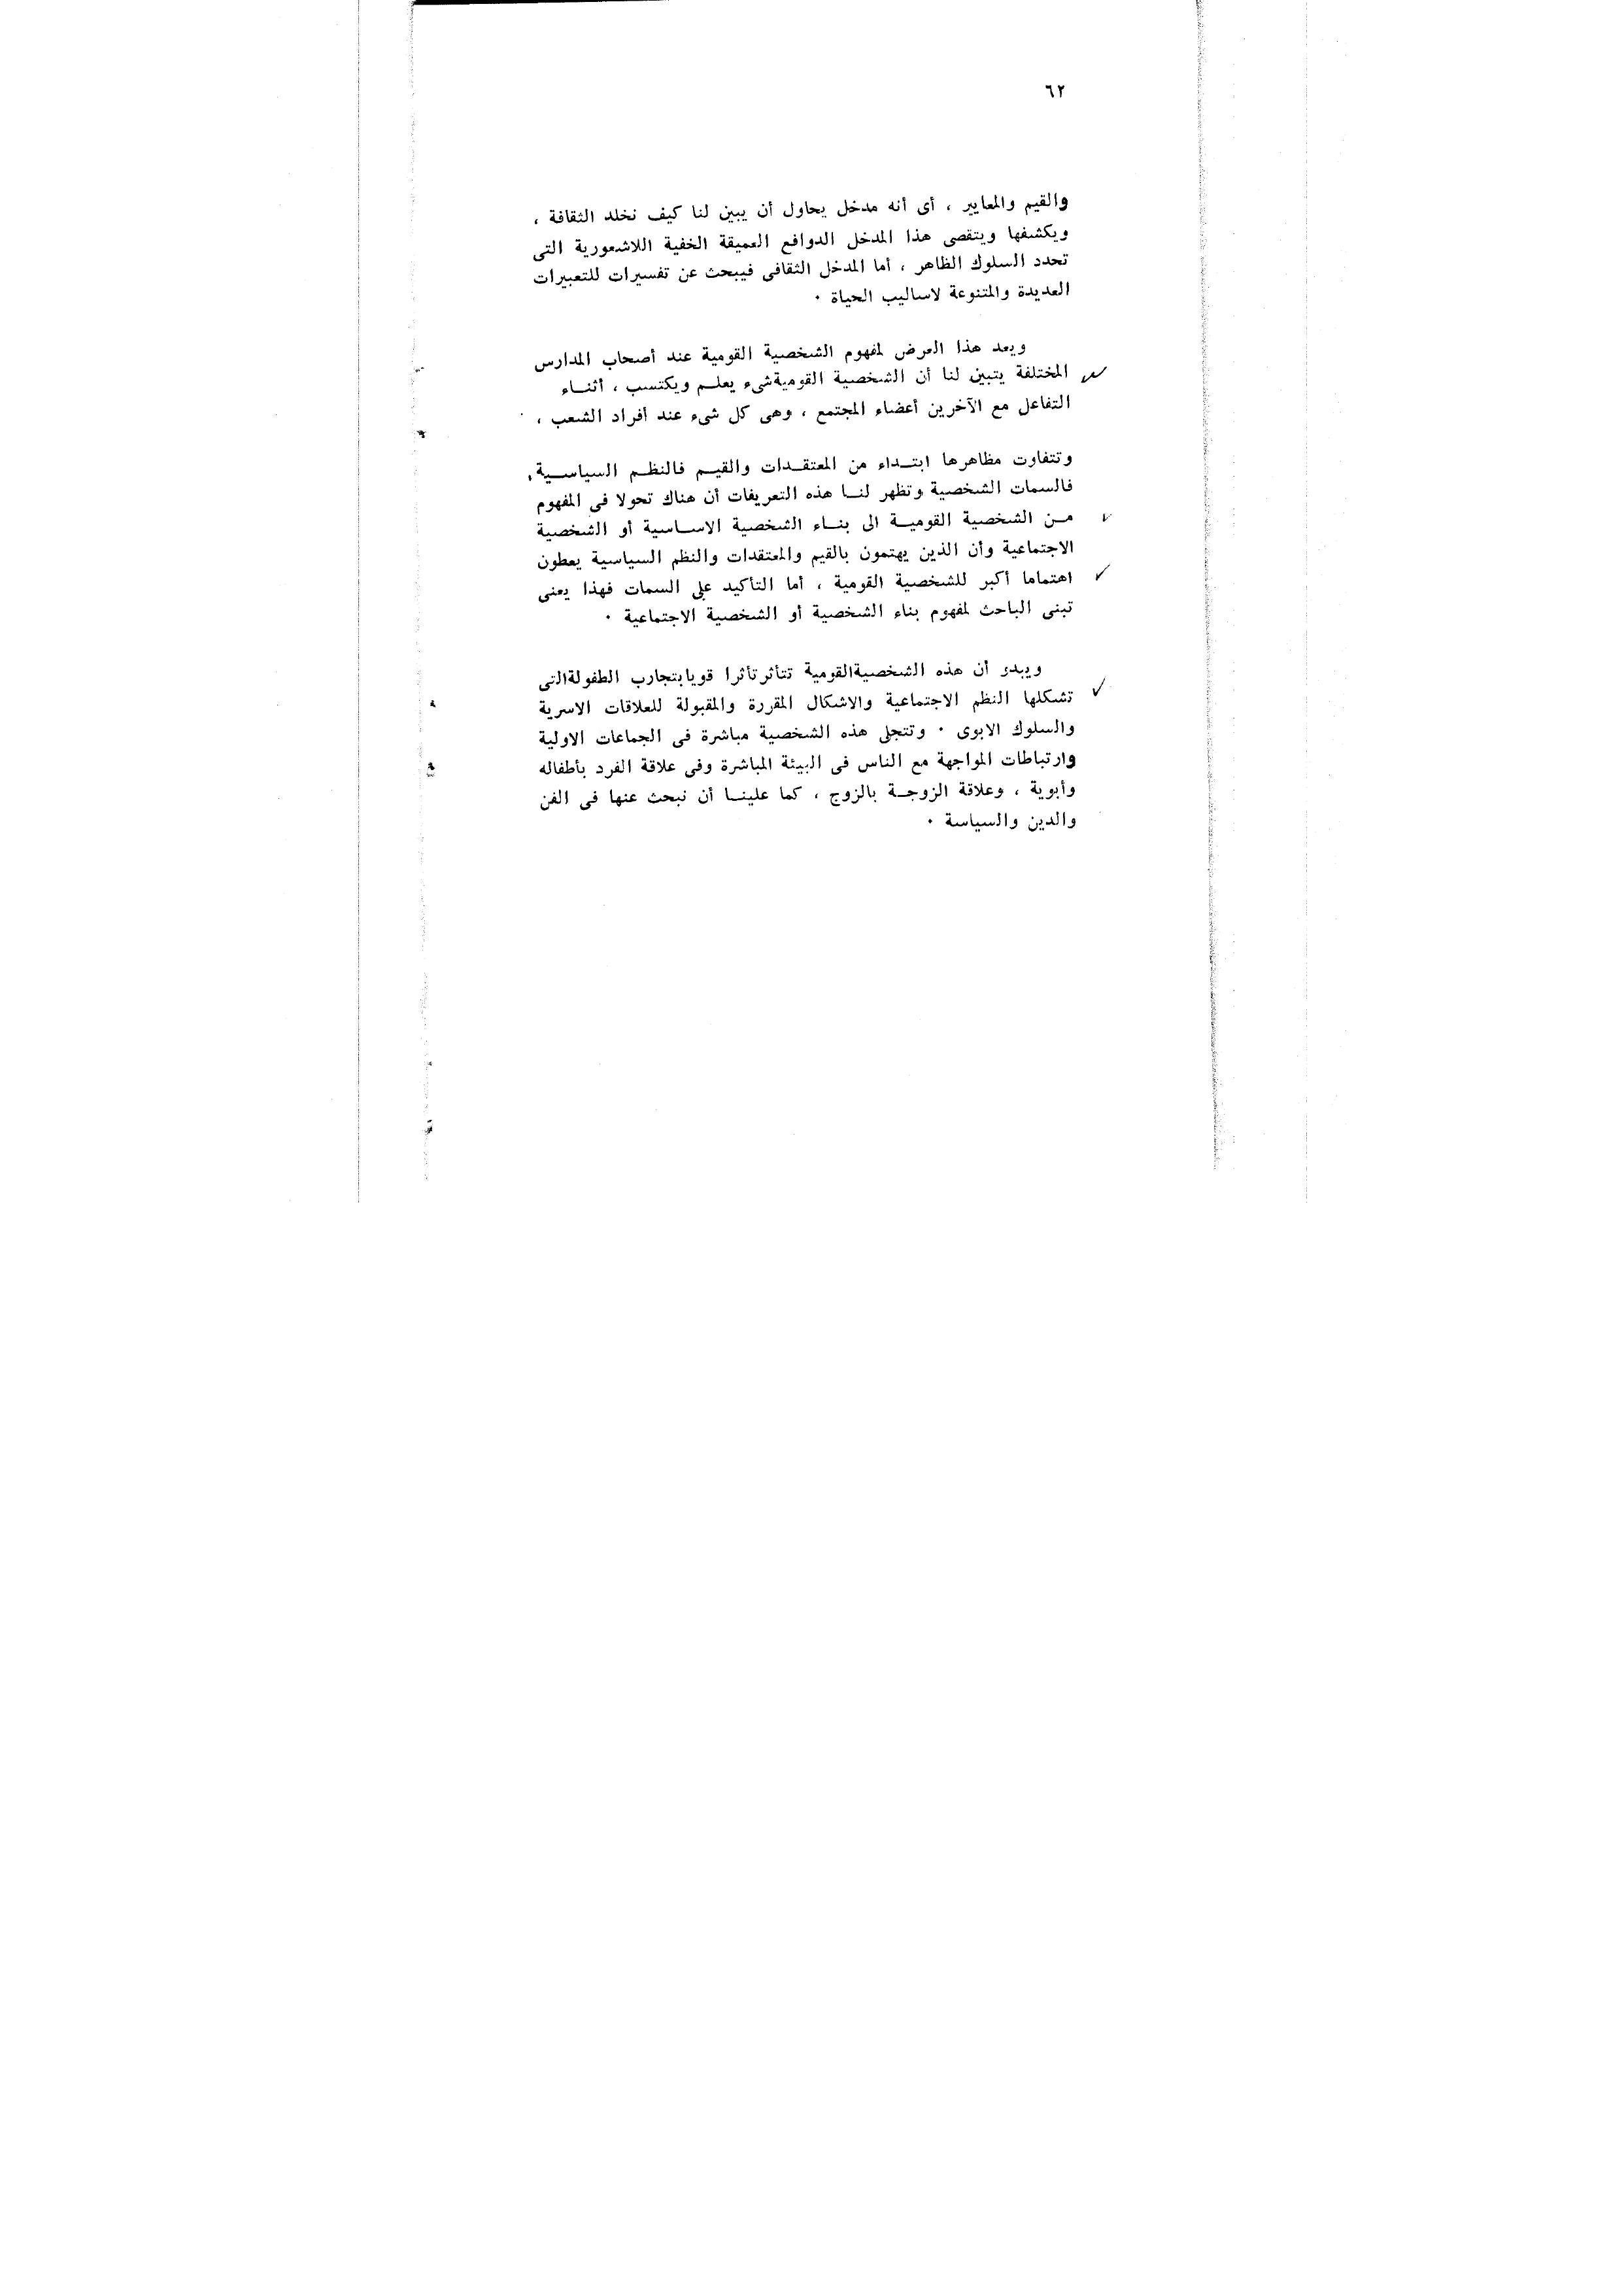 ٦٢
والقيم والمعايير ، أى أنه مدخل يحاول أن يبين لنا كيف نخلد الثقافة ،
ويكشفها ويتقصى هذا المدخل الدوافع العميقة الخفية اللاشعورية التى
تحدد السلوك الظاهر ، أما المدخل الثقافى فيبحث عن تفسيرات للتعبيرات
العديدة والمتنوعة لاساليب الحياة ٠
وبعد هذا العرض لمفهوم الشخصية القومية عند أصحاب المدارس
المختلفة يتبين لنا أن الشخصية القومية شىء يعلم ويكتسب ، أثناء
التفاعل مع الآخرين أعضاء المجتمع ، وهى كل شىء عند أفراد الشعب ،
وتتفاوت مظاهرها ابتداء من المعتقدات والقيم فالنظم السياسية ,
فالسمات الشخصية وتظهر لنا هذه التعريفات أن هناك تحولا فى المفهوم
من الشخصية القومية الى بناء الشخصية الاساسية أو الشخصية
الاجتماعية وأن الذين يهتمون بالقيم والمعتقدات والنظم السياسية يعطون
اهتماما أكبر للشخصية القومية ، أما التأكيد على السمات فهذا يعنى
تبنى الباحث لمفهوم بناء الشخصية أو الشخصية الاجتماعية ٠
ويبدو أن هذه الشخصية القومية تتأثر تأثرا قويا بتجارب الطفولة التى
تشكلها النظم الاجتماعية والاشكال المقررة والمقبولة للعلاقات الاسرية
والسلوك الابوى ٠ وتتجلى هذه الشخصية مباشرة فى الجماعات الاولية
وارتباطات المواجهة مع الناس فى البيئة المباشرة وفى علاقة الفرد بأطفاله
وأبوية ، وعلاقة الزوجة بالزوج ، كما علينا أن نبحث عنها فى الفن
والدين والسياسة ٠